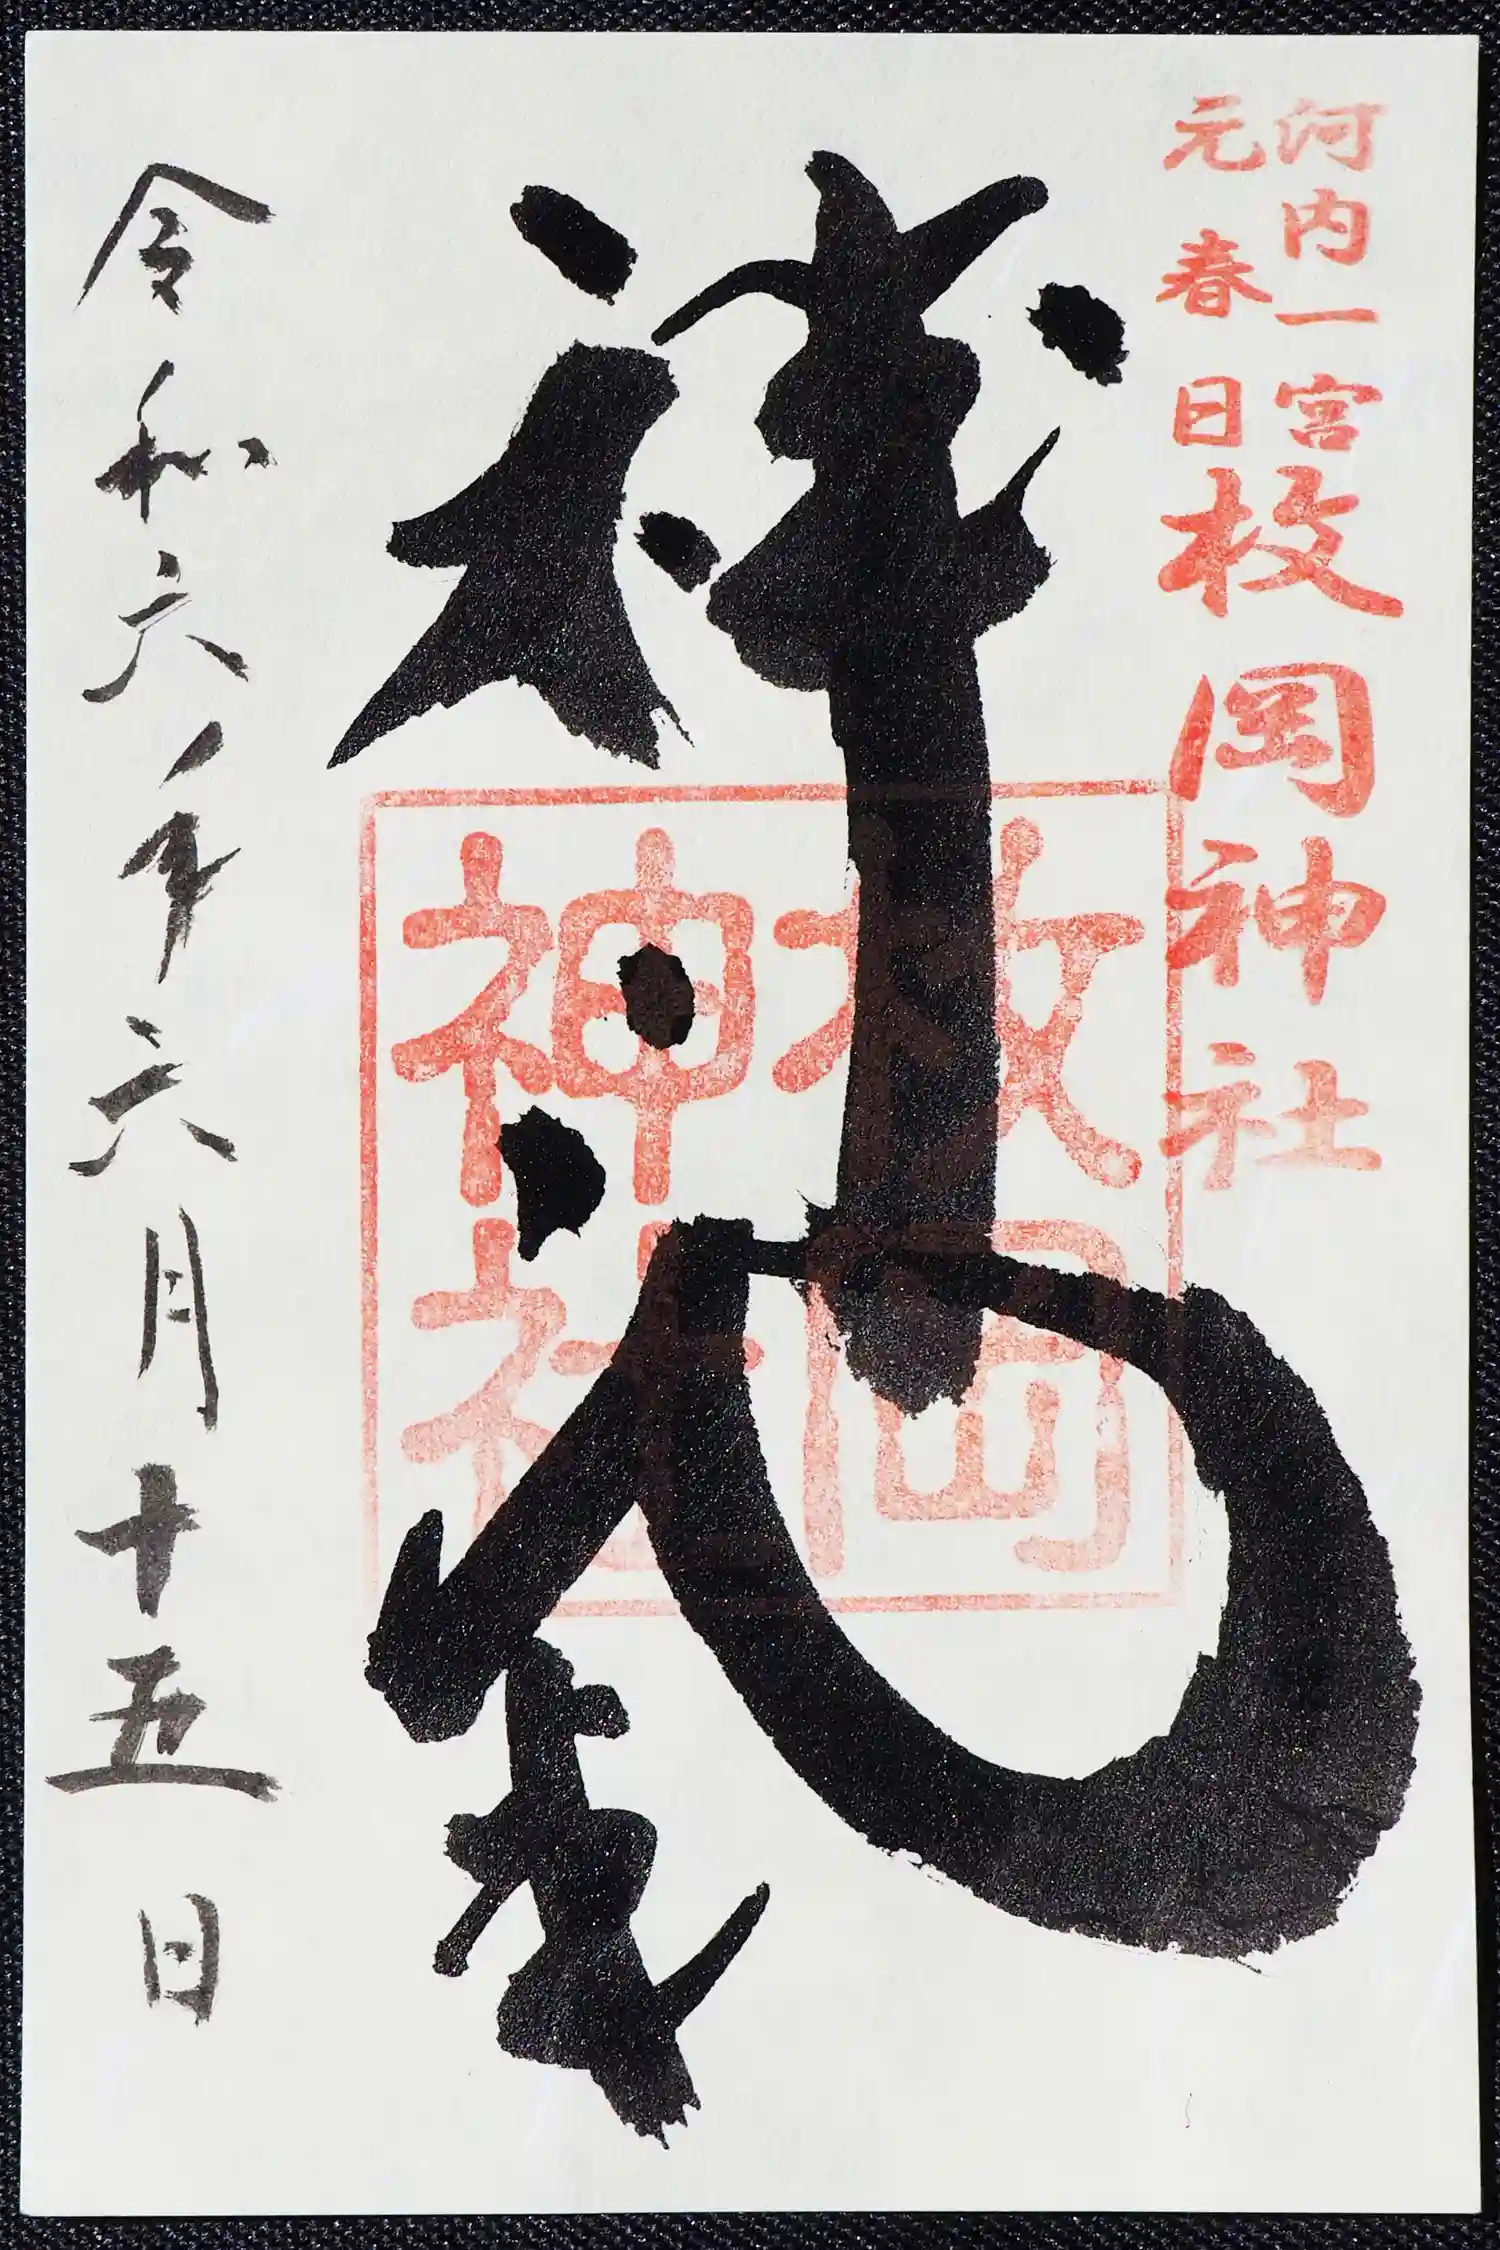 河内一宮
元春日
枚岡神社
祥
枚岡
神社
令和六年六月十五日